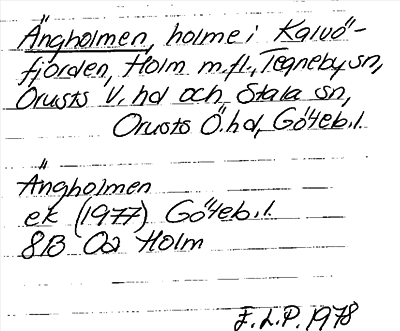 Ängholmen, holme i Kalvö-
fjorden, Holm m.fl., Tegneby sn,
Orusts V. hd och Stala sn,
Orusts Ö. hd, Göteb. l.
Ängholmen
ek (1977) Göteb. l.
8B Od Holm
F.L.P. 1978